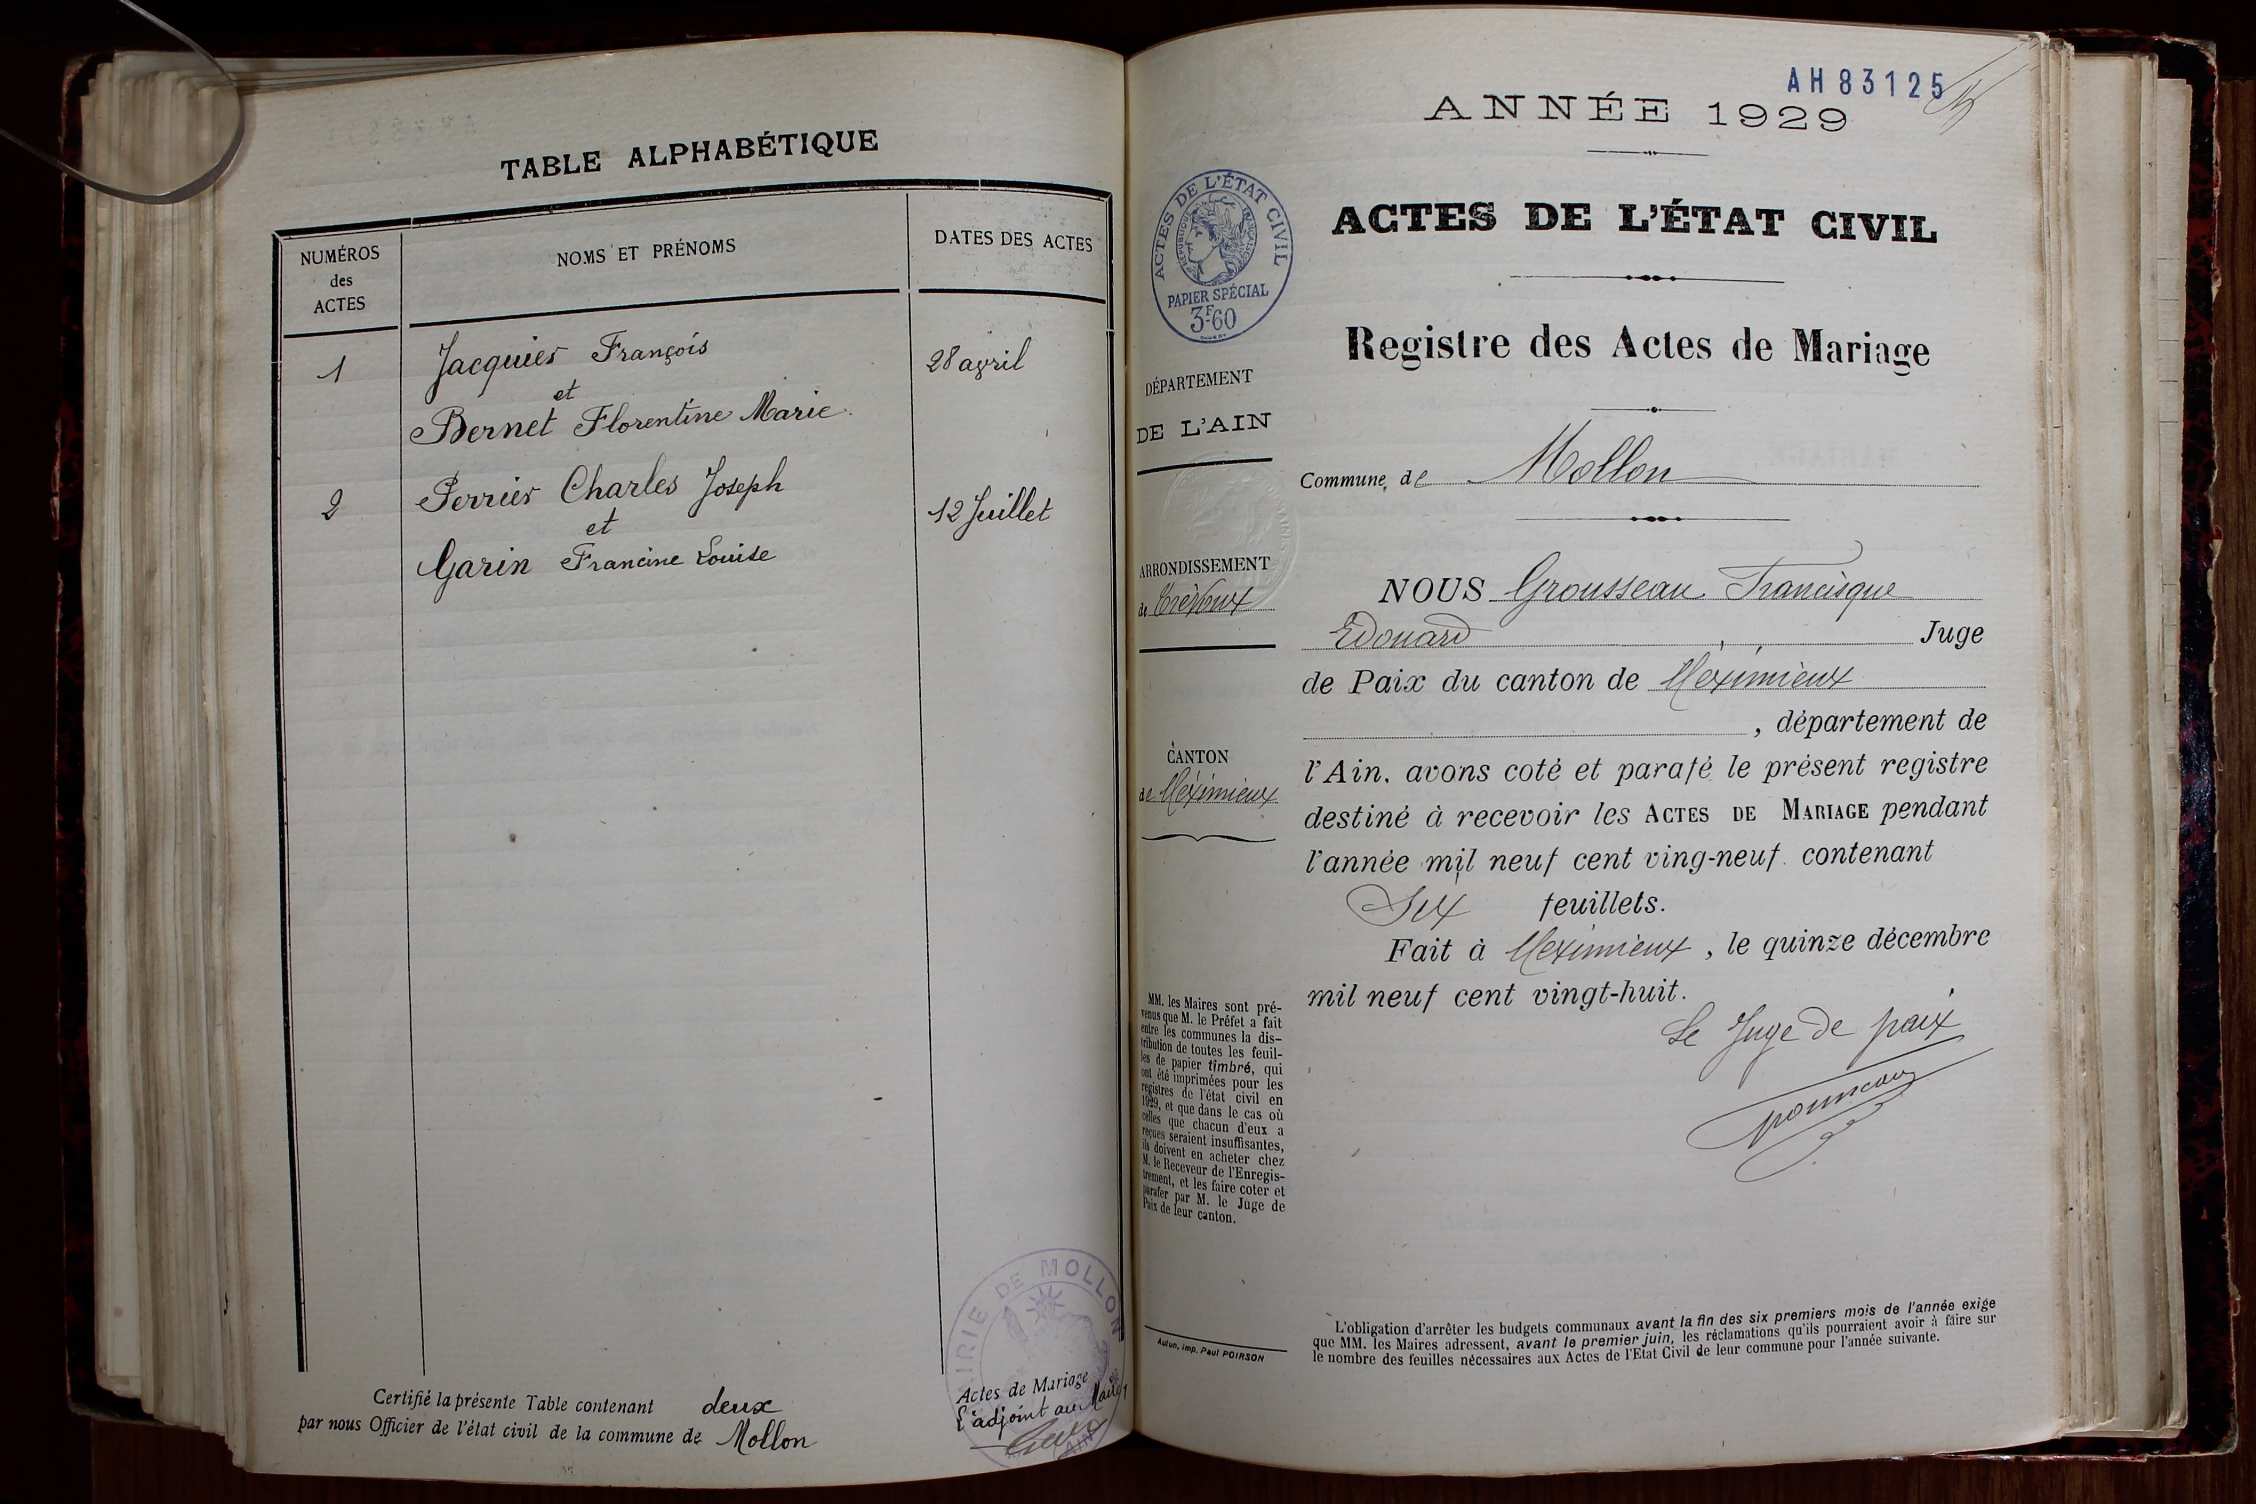 TABLE ALPHABÉTIQUE
NUMÉROS
des
ACTES
NOMS ET PRÉNOMS
DATES DES ACTES
1
Jacquier François
et
Bernet Florentine Marie
28 avril
2
Perrier Charles Joseph
et
Garin Francine Louise
12 Juillet
Certifié la présente Table contenant deux
Actes de Mariage
par nous Officier de l'état civil de la commune de Mollon
L'adjoint au Maire
MAIRIE DE MOLLON
AIN
AH 83125
ANNÉE 1929
ACTES DE L'ÉTAT CIVIL
RÉPUBLIQUE FRANÇAISE
PAPIER SPÉCIAL
3F.60
ACTES DE L'ÉTAT CIVIL
Registre des Actes de Mariage
DÉPARTEMENT
DE L'AIN
Commune de Mollon
ARRONDISSEMENT
de Trévoux
CANTON
de Méximieux
NOUS Grousseau Francisque
Edouard Juge
de Paix du canton de Méximieux
, département de
l'Ain, avons coté et parafé le présent registre
destiné à recevoir les ACTES DE MARIAGE pendant
l'année mil neuf cent ving-neuf contenant
Six feuillets.
Fait à Meximieux, le quinze décembre
mil neuf cent vingt-huit.
Le Juge de paix
MM. les Maires sont pré-
venus que M. le Préfet a fait
entre les communes la dis-
tribution de toutes les feuil-
les de papier timbré, qui
ont été imprimées pour les
registres de l'état civil en
1929, et que dans le cas où
celles que chacun d'eux a
reçues seraient insuffisantes,
ils doivent en acheter chez
M. le Receveur de l'Enregis-
trement, et les faire coter et
parafer par M. le Juge de
Paix de leur canton.
Autun, imp. Paul POIRSON
L'obligation d'arrêter les budgets communaux avant la fin des six premiers mois de l'année exige
que MM. les Maires adressent, avant le premier juin, les réclamations qu'ils pourraient avoir à faire sur
le nombre des feuilles nécessaires aux Actes de l'Etat Civil de leur commune pour l'année suivante.